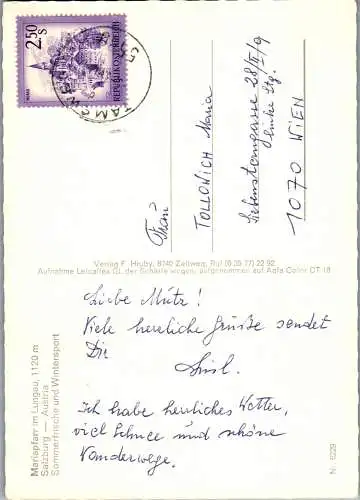 2.50
S
REPUBLIK ÖSTERREICH
TAMSWEG
Frau
TOLLOWICH Maria
28/II/9
1070 WIEN
Verlag F. Hruby, 8740 Zeltweg, Ruf (0 35 77) 22 92
Aufnahme Leicaflex SL der Schärfe wegen, aufgenommen auf Agfa Color CT 18
Mariapfarr im Lungau, 1120 m
Salzburg — Austria
Sommerfrische und Wintersport
Liebe Mutz!
Viele herzliche Grüße sendet
Dir
Ich habe herrliches Wetter,
viel Schnee und schöne
Wanderwege.
Nr. 6229